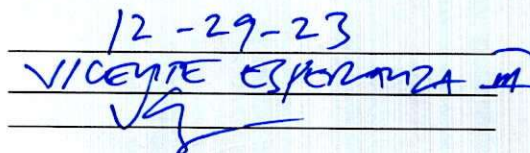 12-29-23
VICENTE ESPERANZA III